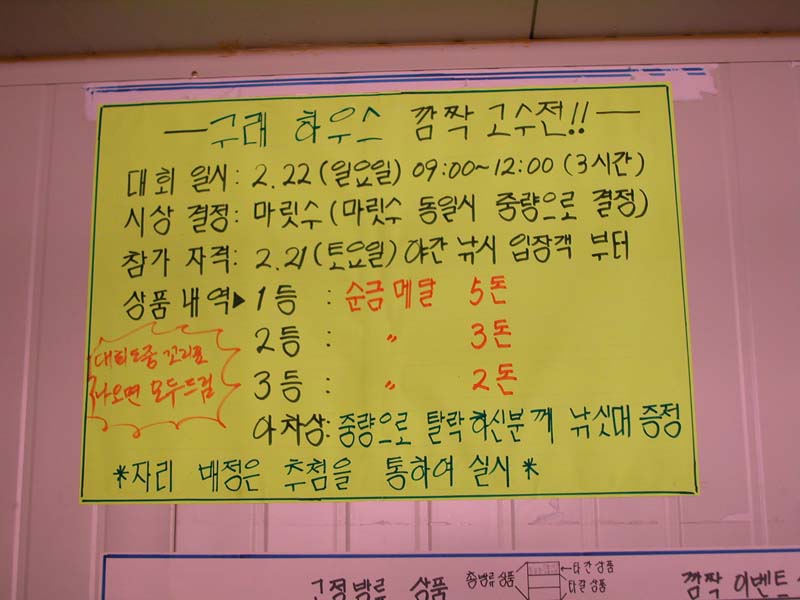 구래 하우스 깜짝 고수전!!
대회 일시: 2.22 (일요일) 09:00~12:00 (3시간)
시상 결정: 마릿수 (마릿수 동일시 중량으로 결정)
참가 자격: 2.21 (토요일) 야간 낚시 입장객 부터
상품 내역▶ 1등 : 순금메달 5돈
2등 : 〃 3돈
3등 : 〃 2돈
대회도중 꼬리표
나오면 모두드림
아차상: 중량으로 탈락하신분께 낚싯대 증정
*자리 배정은 추첨을 통하여 실시*
고정방류 상품
총방류상품
타깃상품
타깃상품
깜짝 이벤트